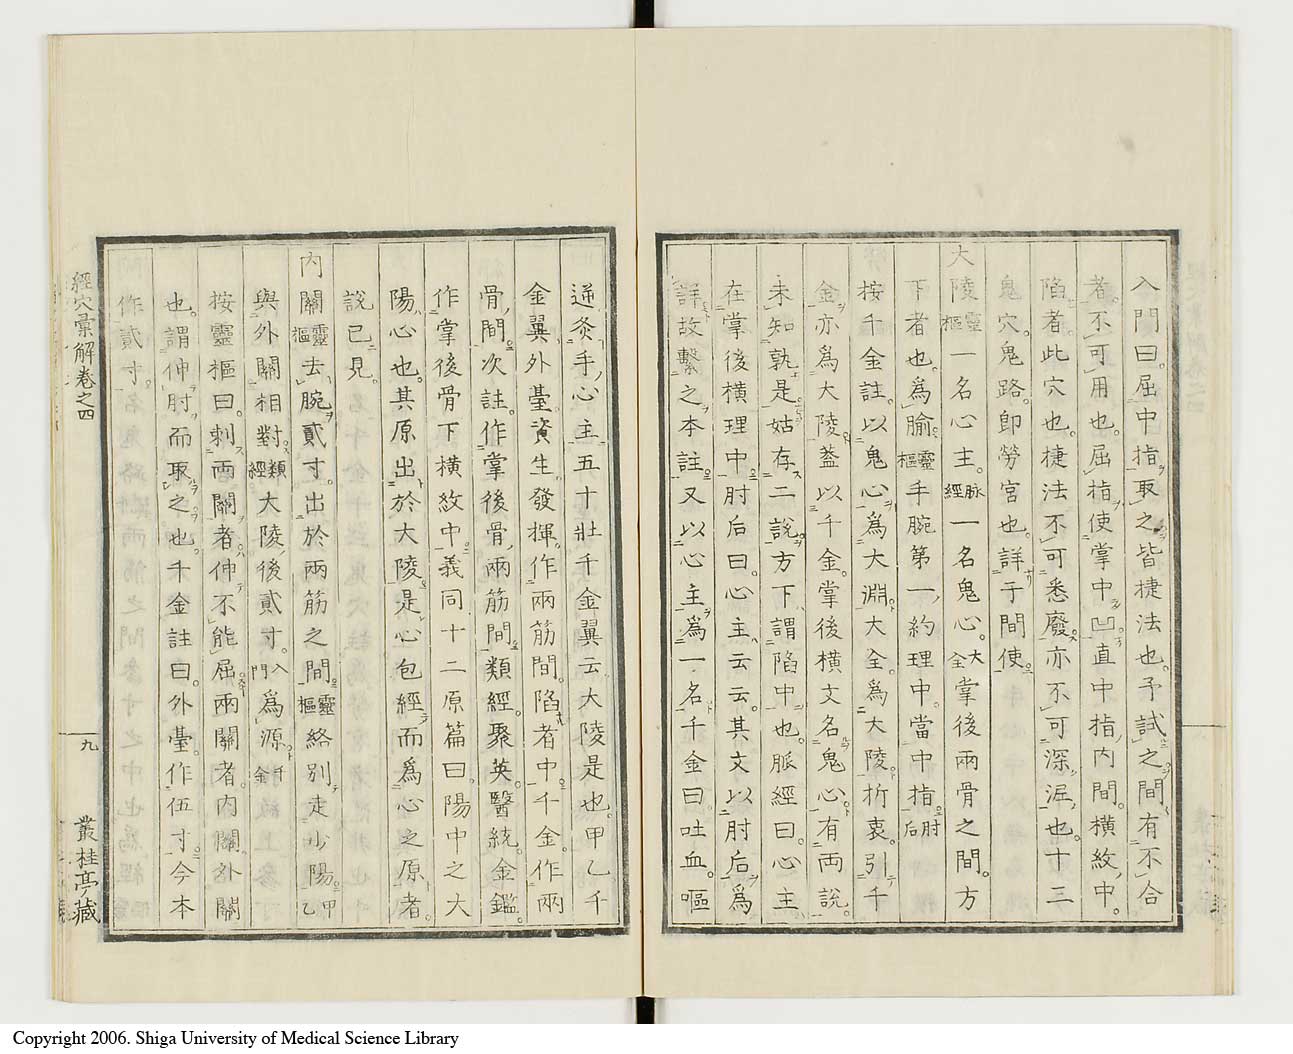 入門曰。屈中指取之皆捷法也。予試之間有不合
者。不可用也。屈指使掌中凹。直中指內間。橫紋中。
陷者。此穴也。捷法不可悉廢。亦不可深泥也。十三
鬼穴。鬼路。卽勞宮也。詳于間使。
大陵靈樞一名心主。脈經一名鬼心。大全掌後兩骨之間。方
下者也。爲腧。靈樞手腕第一約理中。當中指。肘后
按千金註。以鬼心爲大淵。大全。爲大陵。折衷。引千
金亦爲大陵。蓋以千金。掌後橫文名鬼心。有兩說。
未知孰是。姑存二說。方下謂陷中也。脈經曰。心主
在掌後橫理中。肘后曰。心主云云。其文以肘后爲
詳。故繫之本註。又以心主爲一名。千金曰。吐血。嘔
逆灸手心主五十壯。千金翼云。大陵是也。甲乙千
金翼。外臺。資生。發揮。作兩筋間。陷者中。千金。作兩
骨間。次註。作掌後骨兩筋間。類經。聚英。醫統。金鑑。
作掌後骨下橫紋中。義同。十二原篇曰。陽中之大
陽心也。其原出於大陵。是心包經。而爲心之原者。
說已見。
內關靈樞去腕貳寸。出於兩筋之間。靈樞絡別走少陽。甲乙
與外關相對。類經大陵後貳寸。入門爲源。千金
按靈樞曰。刺兩關者。伸不能屈。兩關者。內關外關
也。謂伸肘而取之也。千金註曰。外臺。作伍寸。今本
作貳寸。
經穴彙解卷之四
九
叢桂亭藏
Copyright 2006. Shiga University of Medical Science Library